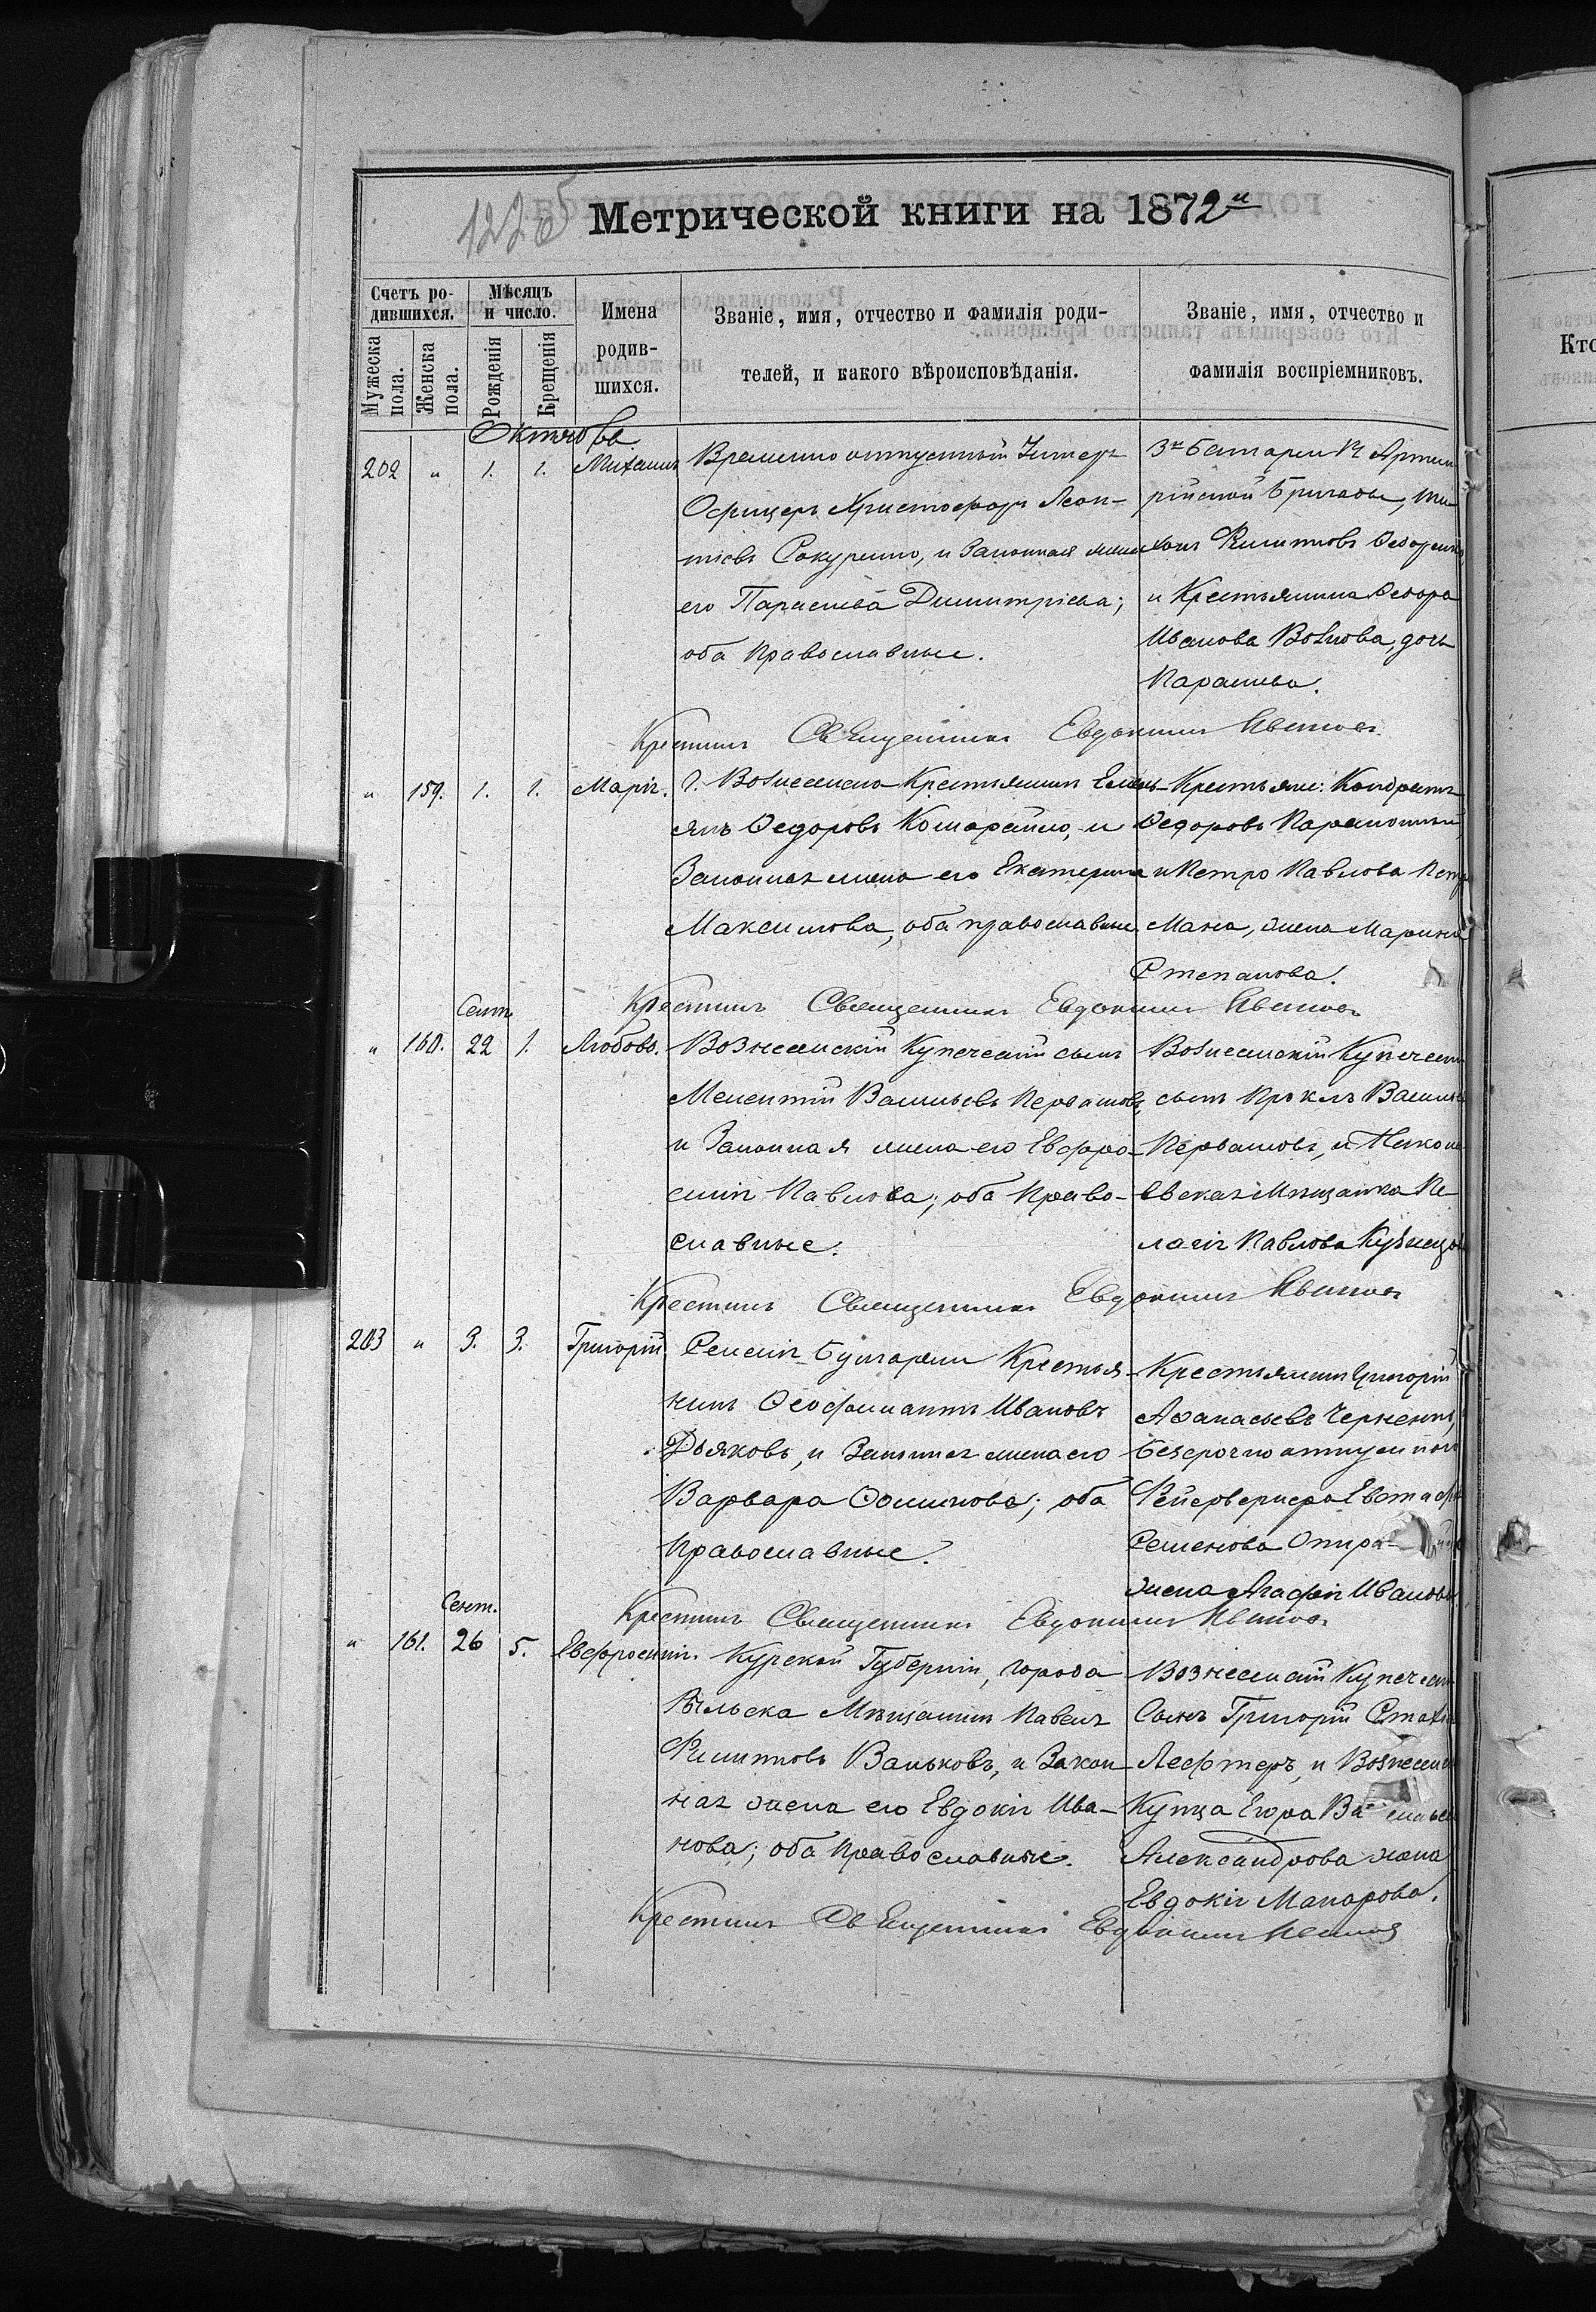 1226
Метрической книги на 1872й
Счетъ ро-
дившихся.
Мужеска
пола.
Женска
пола.
Мѣсяцъ
и число.
Рожденія
Крещенія
Имена
родив-
шихся.
Званіе, имя, отчество и фамилія роди-
телей, и какого вѣроисповѣданія.
Званіе, имя, отчество и
фамилія воспріемниковъ.
Кто
Октябрь
202 " 1. 1. Михаилъ
Временно отпускный Унтеръ
Офицеръ Христофоръ Леон-
тіевъ Сокуренко, и Законная жена
его Параскева Димитріева;
оба Православные.
3й Батареи Артил
рійской Бригады,
Филиповъ
и Крестьянина Ѳедора
Иванова Волкова, дочь
Параскева.
Крестилъ Священникъ Евдокимъ
" 159. 1. 1. Марія.
г. Вознесенска Крестьянинъ Емель-
янъ Ѳедоровъ и
Законная жена его Екатерина
Максимова, оба православные.
Крестьяне: Кондратъ
Ѳедоровъ
и Петро Павлова
жена Марина
Степанова.
Крестилъ Священникъ Евдокимъ
Сент.
" 160. 22 1. Любовь.
Вознесенскій Купеческій сынъ
Мелентій Васильевъ Первашовъ,
и Законная жена его Евфро-
синія Павлова; оба Право-
славные.
Вознесенскій Купеческій
сынъ Проклъ Василье
Первашовъ, и Никола
евская Мѣщанка Пе
лагія Павлова Кузнецов
Крестилъ Священникъ Евдокимъ
203 " 3. 3. Григорій.
Селенія Булгарки Крестья-
нинъ Ѳеофилактъ Ивановъ
Дьяковъ, и Законная жена его
Варвара Осипова; оба
Православные.
Крестьянинъ Григорій
Аѳанасьевъ
Безсрочно отпускного
Евстафі
Семенова
жена Агафія Иванова.
Крестилъ Священникъ Евдокимъ
Сент.
" 161. 26 5. Евфросинія.
Курской Губерніи, города
Рыльска Мѣщанинъ Павелъ
Филиповъ Ваньковъ, и Закон-
ная жена его Евдокія Ива-
нова; оба Православные.
Вознесенскій Купечес
Сынъ Григорій
Лефтеръ, и Вознесен
Купца Егора Василье
Александрова жена
Евдокія Макарова.
Крестилъ Священникъ Евдокимъ